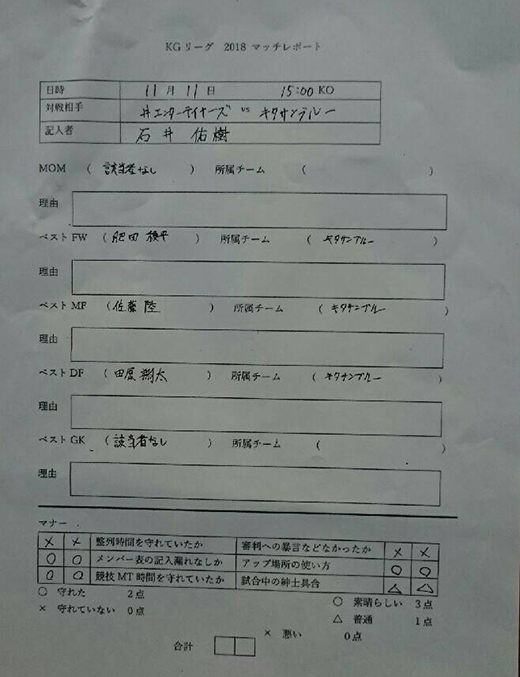 KGリーグ 2018 マッチレポート
日時 11月11日 15:00KO
対戦相手 井エンターテイナーズ vs キタサンブルー
記入者 石井 佑樹
MOM ( 該当者なし ) 所属チーム ( )
理由
ベストFW ( 肥田 ) 所属チーム ( キタサンブルー )
理由
ベストMF ( 佐藤 陸 ) 所属チーム ( キタサンブルー )
理由
ベストDF ( 田原 翔太 ) 所属チーム ( キタサンブルー )
理由
ベストGK ( 該当者なし ) 所属チーム ( )
理由
マナー
× × 整列時間を守れていたか 審判への暴言などなかったか × ×
○ ○ メンバー表の記入漏れなしか アップ場所の使い方 ○ ○
○ ○ 競技MT時間を守れていたか 試合中の紳士具合 △ △
○ 守れた 2点 ○ 素晴らしい 3点
× 守れていない 0点 △ 普通 1点
合計 × 悪い 0点